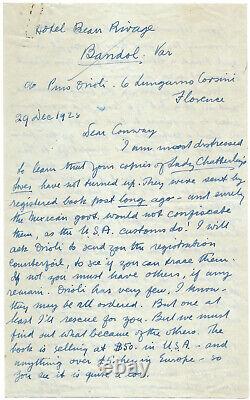 Hotel Beau Rivage
Bandol. Var
c/o Pino Orioli - 6 Lungarno Corsini
Florence
29 Dec 1928
Dear Conway
I am most distressed
to learn that your copies of Lady Chatterley's
have not turned up. They were sent by
registered book post long ago - and surely
the Mexican govt. would not confiscate
them, as the U.S.A. customs do! I will
ask Orioli to send you the registration
counterfoil, to see if you can trace them.
If not you must have others, if any
remain. Orioli has very few, I know -
they may be all ordered. But one at
least I'll rescue for you. But we must
find out what became of the others. The
book is selling at $50. in U.S.A. - and
anything over in Europe - so
you see it is quite a loss.